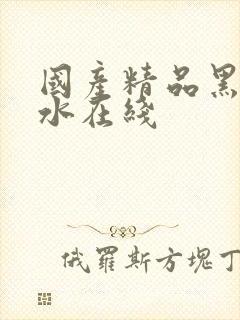 國產精品黑
水在綫
俄羅斯方塊丁